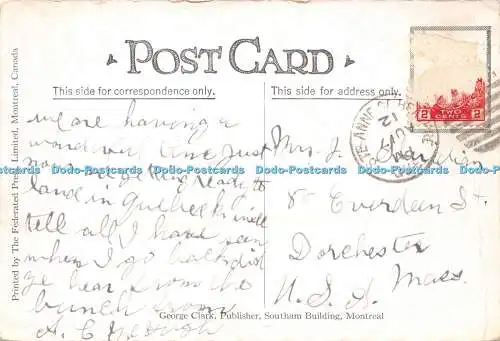 POST CARD
This side for correspondence only.
This side for address only.
we are having a
time just
now
ready to
land in Quebec
tell all I have seen
when I go back did
ye hear from the
bunch
Mrs. J.
85 Everdean St.
Dorchester
Mass.
U.S.A.
2 TWO CENTS 2
STE. ANNE DE BE
12
Printed by The Federated Press Limited, Montreal, Canada
George Clark, Publisher, Southam Building, Montreal
Dodo-Postcards Dodo-Postcards Dodo-Postcards Dodo-Postcards Dodo-Postcards
Dodo-Postcards Dodo-Postcards Dodo-Postcards Dodo-Postcards Dodo-Postcards